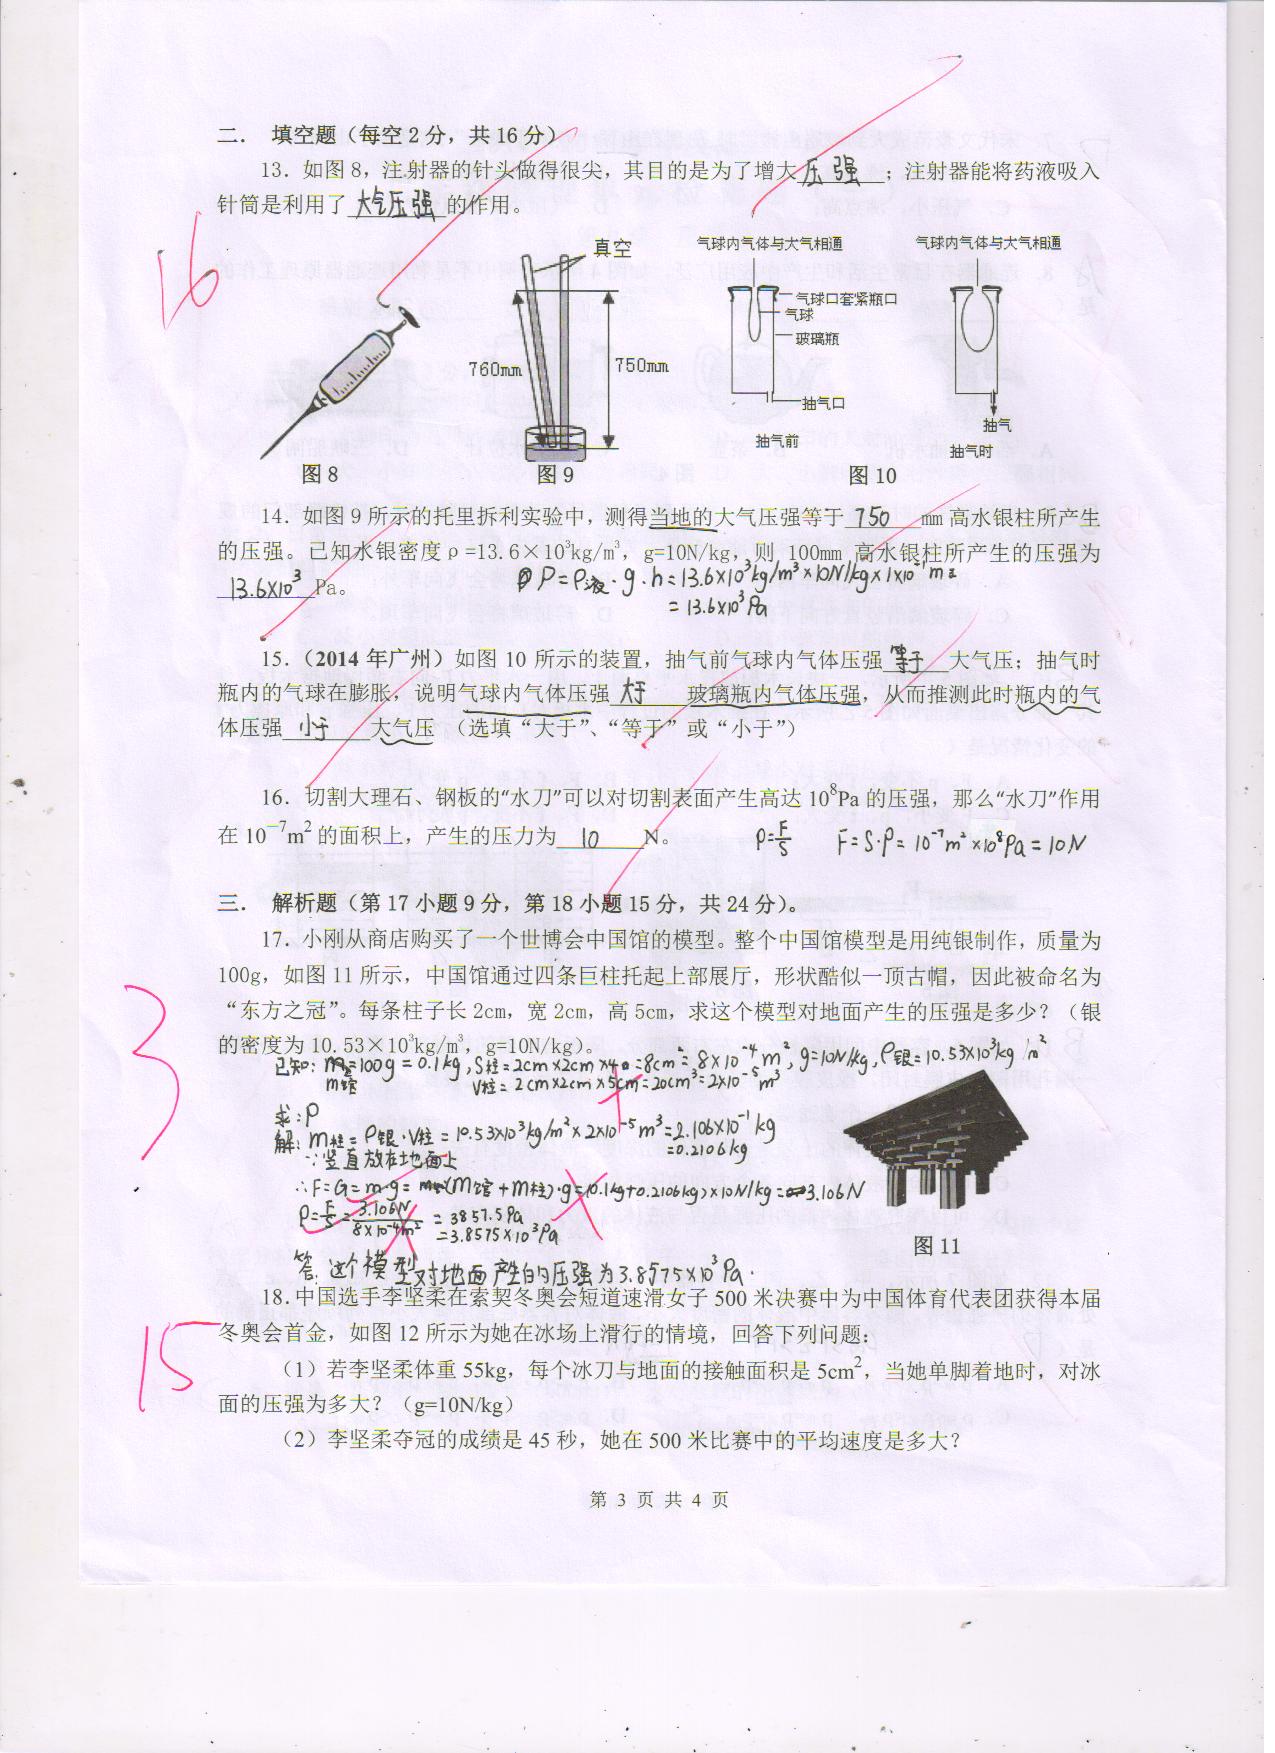 二． 填空题（每空2分，共16分）
13．如图8，注射器的针头做得很尖，其目的是为了增大 压强 ；注射器能将药液吸入
针筒是利用了 大气压强 的作用。
16
真空
760mm
750mm
图8
图9
气球内气体与大气相通
气球口套紧瓶口
气球
玻璃瓶
抽气口
抽气前
气球内气体与大气相通
抽气
抽气时
图10
14．如图9所示的托里拆利实验中，测得当地的大气压强等于 750 mm高水银柱所产生
的压强。已知水银密度ρ=13.6×10³kg/m³，g=10N/kg，则 100mm 高水银柱所产生的压强为
13.6×10³ Pa。
P=ρ液·g·h=13.6×10³kg/m³×10N/kg×1×10⁻¹m
=13.6×10³Pa
15．（2014年广州）如图10所示的装置，抽气前气球内气体压强 等于 大气压；抽气时
瓶内的气球在膨胀，说明气球内气体压强 大于 玻璃瓶内气体压强，从而推测此时瓶内的气
体压强 小于 大气压 （选填“大于”、“等于”或“小于”）
16．切割大理石、钢板的“水刀”可以对切割表面产生高达10⁸Pa的压强，那么“水刀”作用
在10⁻⁷m²的面积上，产生的压力为 10 N。
P=F/S F=S·P=10⁻⁷m²×10⁸Pa=10N
三． 解析题（第17小题9分，第18小题15分，共24分）。
17．小刚从商店购买了一个世博会中国馆的模型。整个中国馆模型是用纯银制作，质量为
100g，如图11所示，中国馆通过四条巨柱托起上部展厅，形状酷似一顶古帽，因此被命名为
“东方之冠”。每条柱子长2cm，宽2cm，高5cm，求这个模型对地面产生的压强是多少？（银
的密度为10.53×10³kg/m³，g=10N/kg）。
3
已知：m馆=100g=0.1kg，S柱=2cm×2cm×4=8cm²=8×10⁻⁴m²，g=10N/kg，ρ银=10.53×10³kg/m²
V柱=2cm×2cm×5cm=20cm³=2×10⁻⁵m³
求：P
解：m柱=ρ银·V柱=10.53×10³kg/m²×2×10⁻⁵m³=2.106×10⁻¹kg
=0.2106kg
∵竖直放在地面上
∴F=G=m·g=(m馆+m柱)·g=(0.1kg+0.2106kg)×10N/kg=3.106N
P=F/S=3.106N/8×10⁻⁴m²=3857.5Pa
=3.8575×10³Pa
答：这个模型对地面产生的压强为3.8575×10³Pa.
图11
15
18.中国选手李坚柔在索契冬奥会短道速滑女子500米决赛中为中国体育代表团获得本届
冬奥会首金，如图12所示为她在冰场上滑行的情境，回答下列问题：
（1）若李坚柔体重55kg，每个冰刀与地面的接触面积是5cm²，当她单脚着地时，对冰
面的压强为多大？（g=10N/kg）
（2）李坚柔夺冠的成绩是45秒，她在500米比赛中的平均速度是多大？
第 3 页 共 4 页